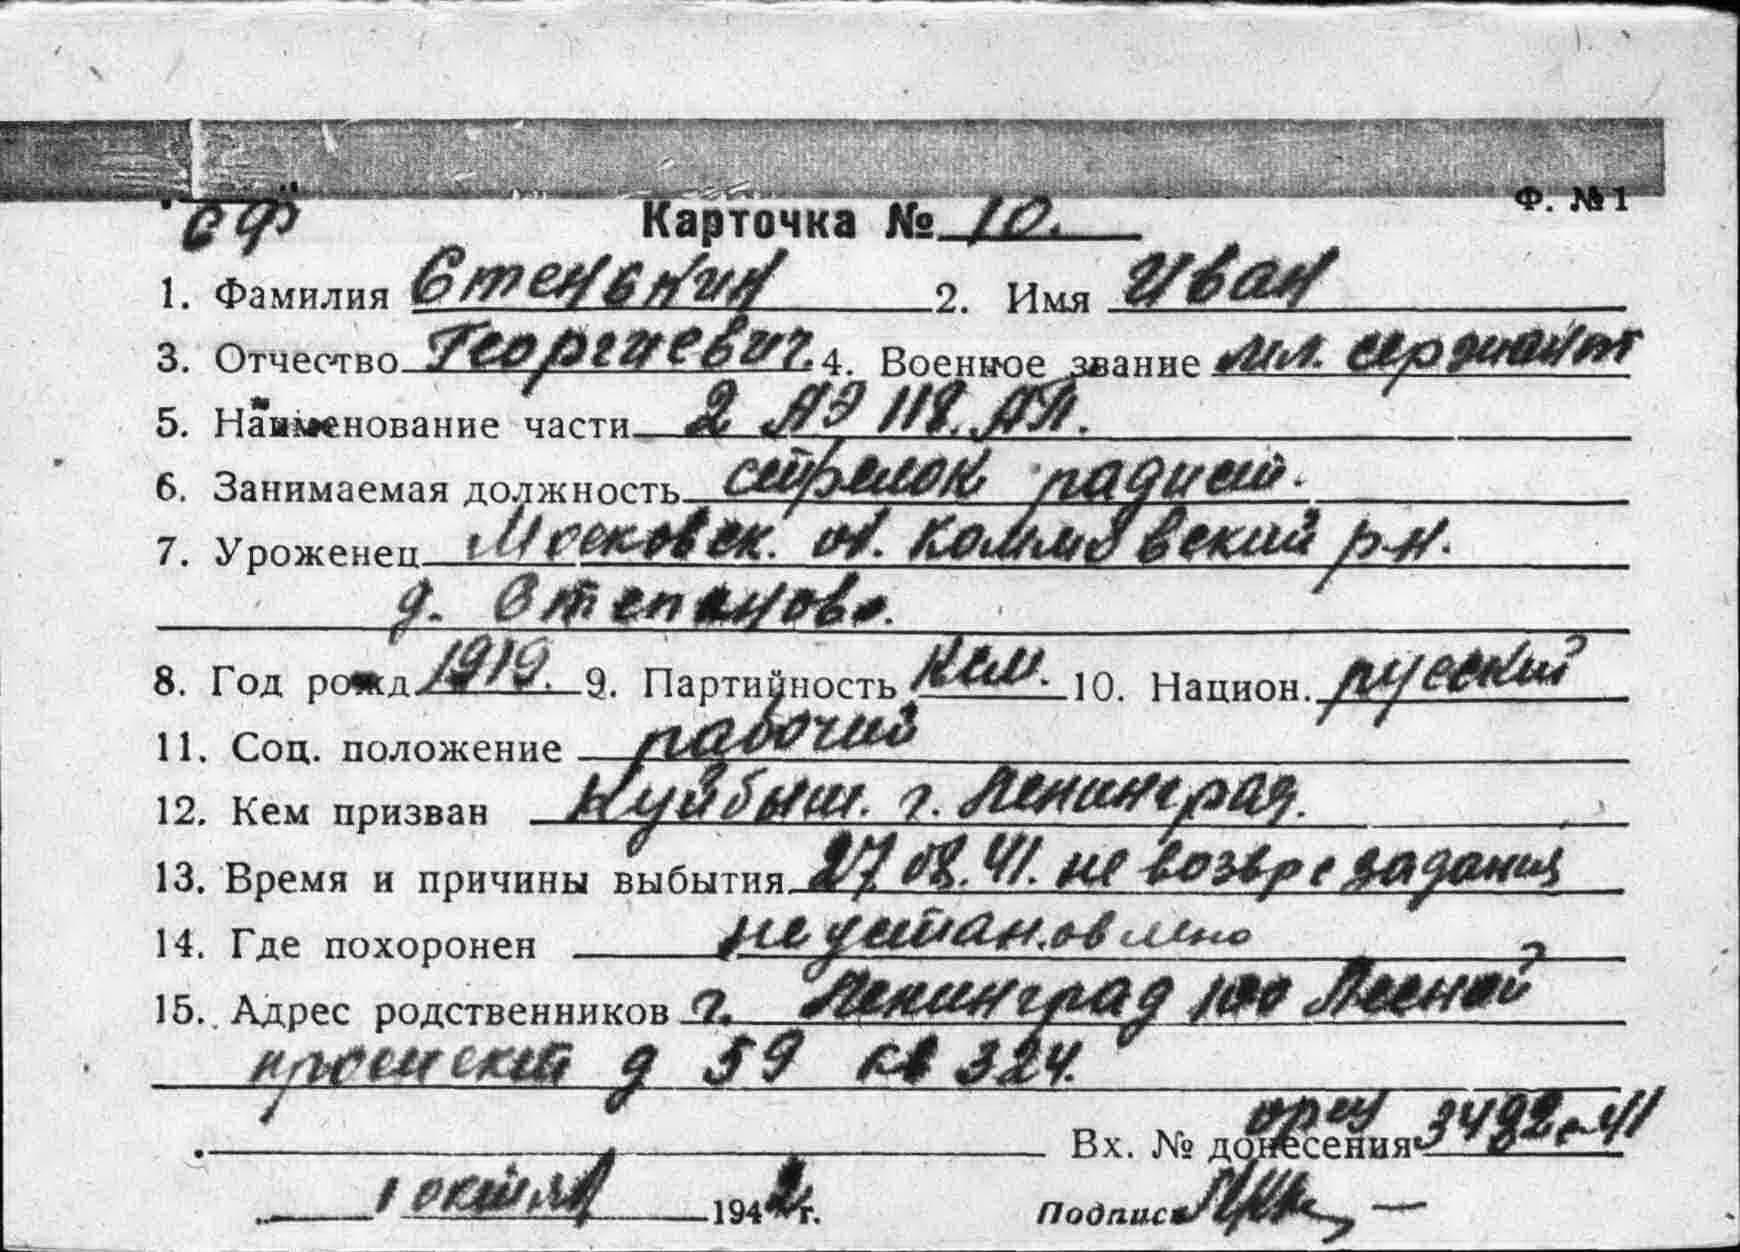 Ф. №1
СФ Карточка № 10.
1. Фамилия Стенькин 2. Имя Иван
3. Отчество Георгиевич. 4. Военное звание мл. сержант
5. Наименование части 2 АЭ 118. АП.
6. Занимаемая должность стрелок радист.
7. Уроженец Московск. об. районский р-н.
д. Степаново.
8. Год рожд 1919. 9. Партийность Ксм. 10. Национ. русский
11. Соц. положение рабочий
12. Кем призван Куйбыш. г. Ленинград.
13. Время и причины выбытия 27 08. 41. не возвр с задания
14. Где похоронен не установлено
15. Адрес родственников г. Ленинград 100 Лесной
проспект д 59 кв 324.
Вх. № донесения 3492с-41
1 октября 1942 г. Подпись